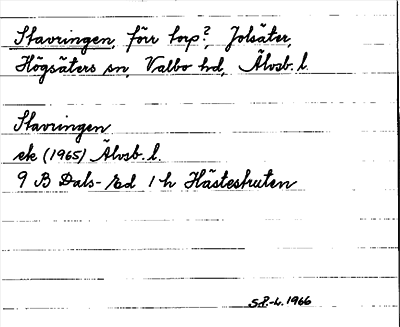 Stavringen, förr torp?, Jolsäter,
Högsäters sn, Valbo hd, Älvsb. l.
Stavringen
ek (1965) Älvsb. l.
9 B Dals-Ed 1 h Hästeskruten
S.P.-L. 1966